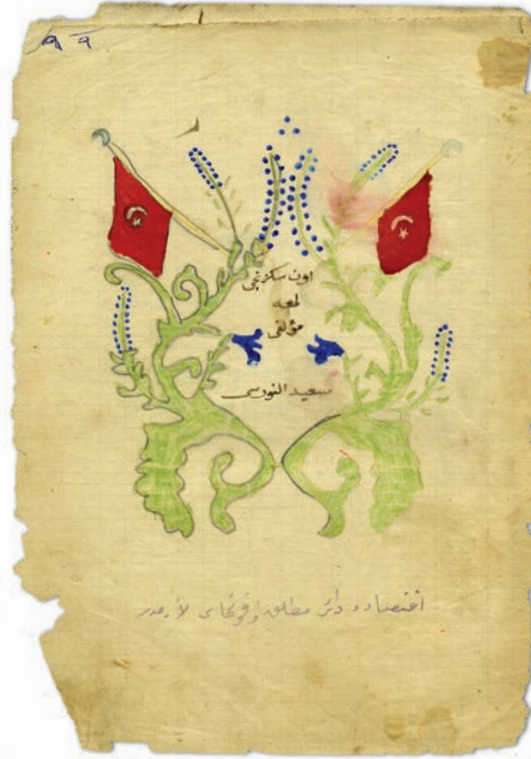 ٩٩
اون سكزنجى
لمعه
مؤلفى
سعيد النورسى
اقتصاده دائر مطلق لازمدر